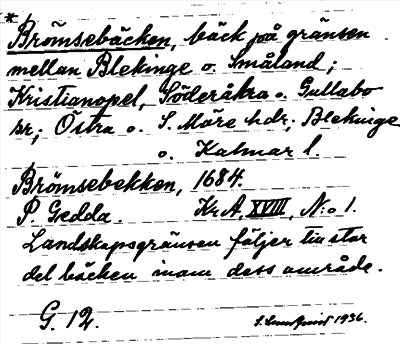 *
Brömsebäcken, bäck på gränsen
mellan Blekinge o. Småland;
Kristianopel, Söderåkra o. Gullabo
sr; Östra o. S. Möre hdr; Blekinge
o. Kalmar l.
Brömsebekken, 1684.
P. Gedda. Kr.A, XVIII, N:o 1.
Landskapsgränsen följer till stor
del bäcken inom dess område.
G. 12.
S. Lundqvist 1936.